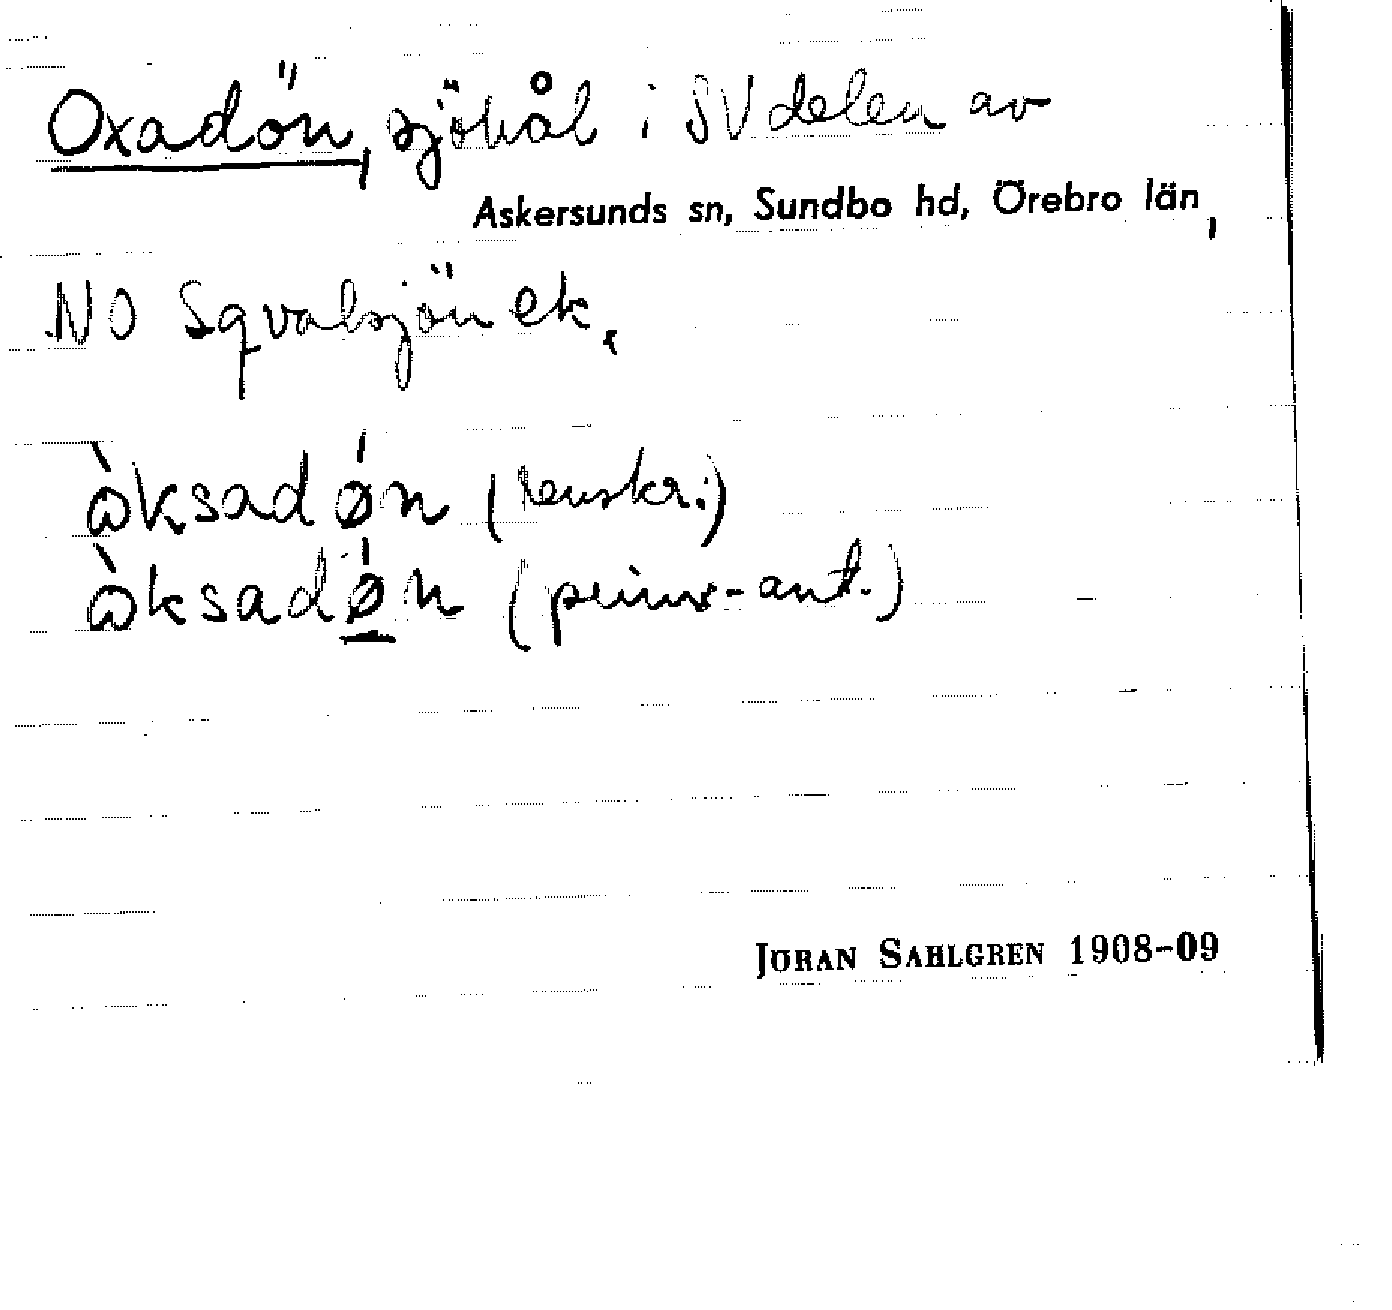 Oxadön, sjöhål i SV delen av
Askersunds sn, Sundbo hd, Örebro län,
NO Sqvalsjön ek.
ὼksadǿn (renskr.)
ὼksadǿn (primär-ant.)
JÖRAN SAHLGREN 1908-09